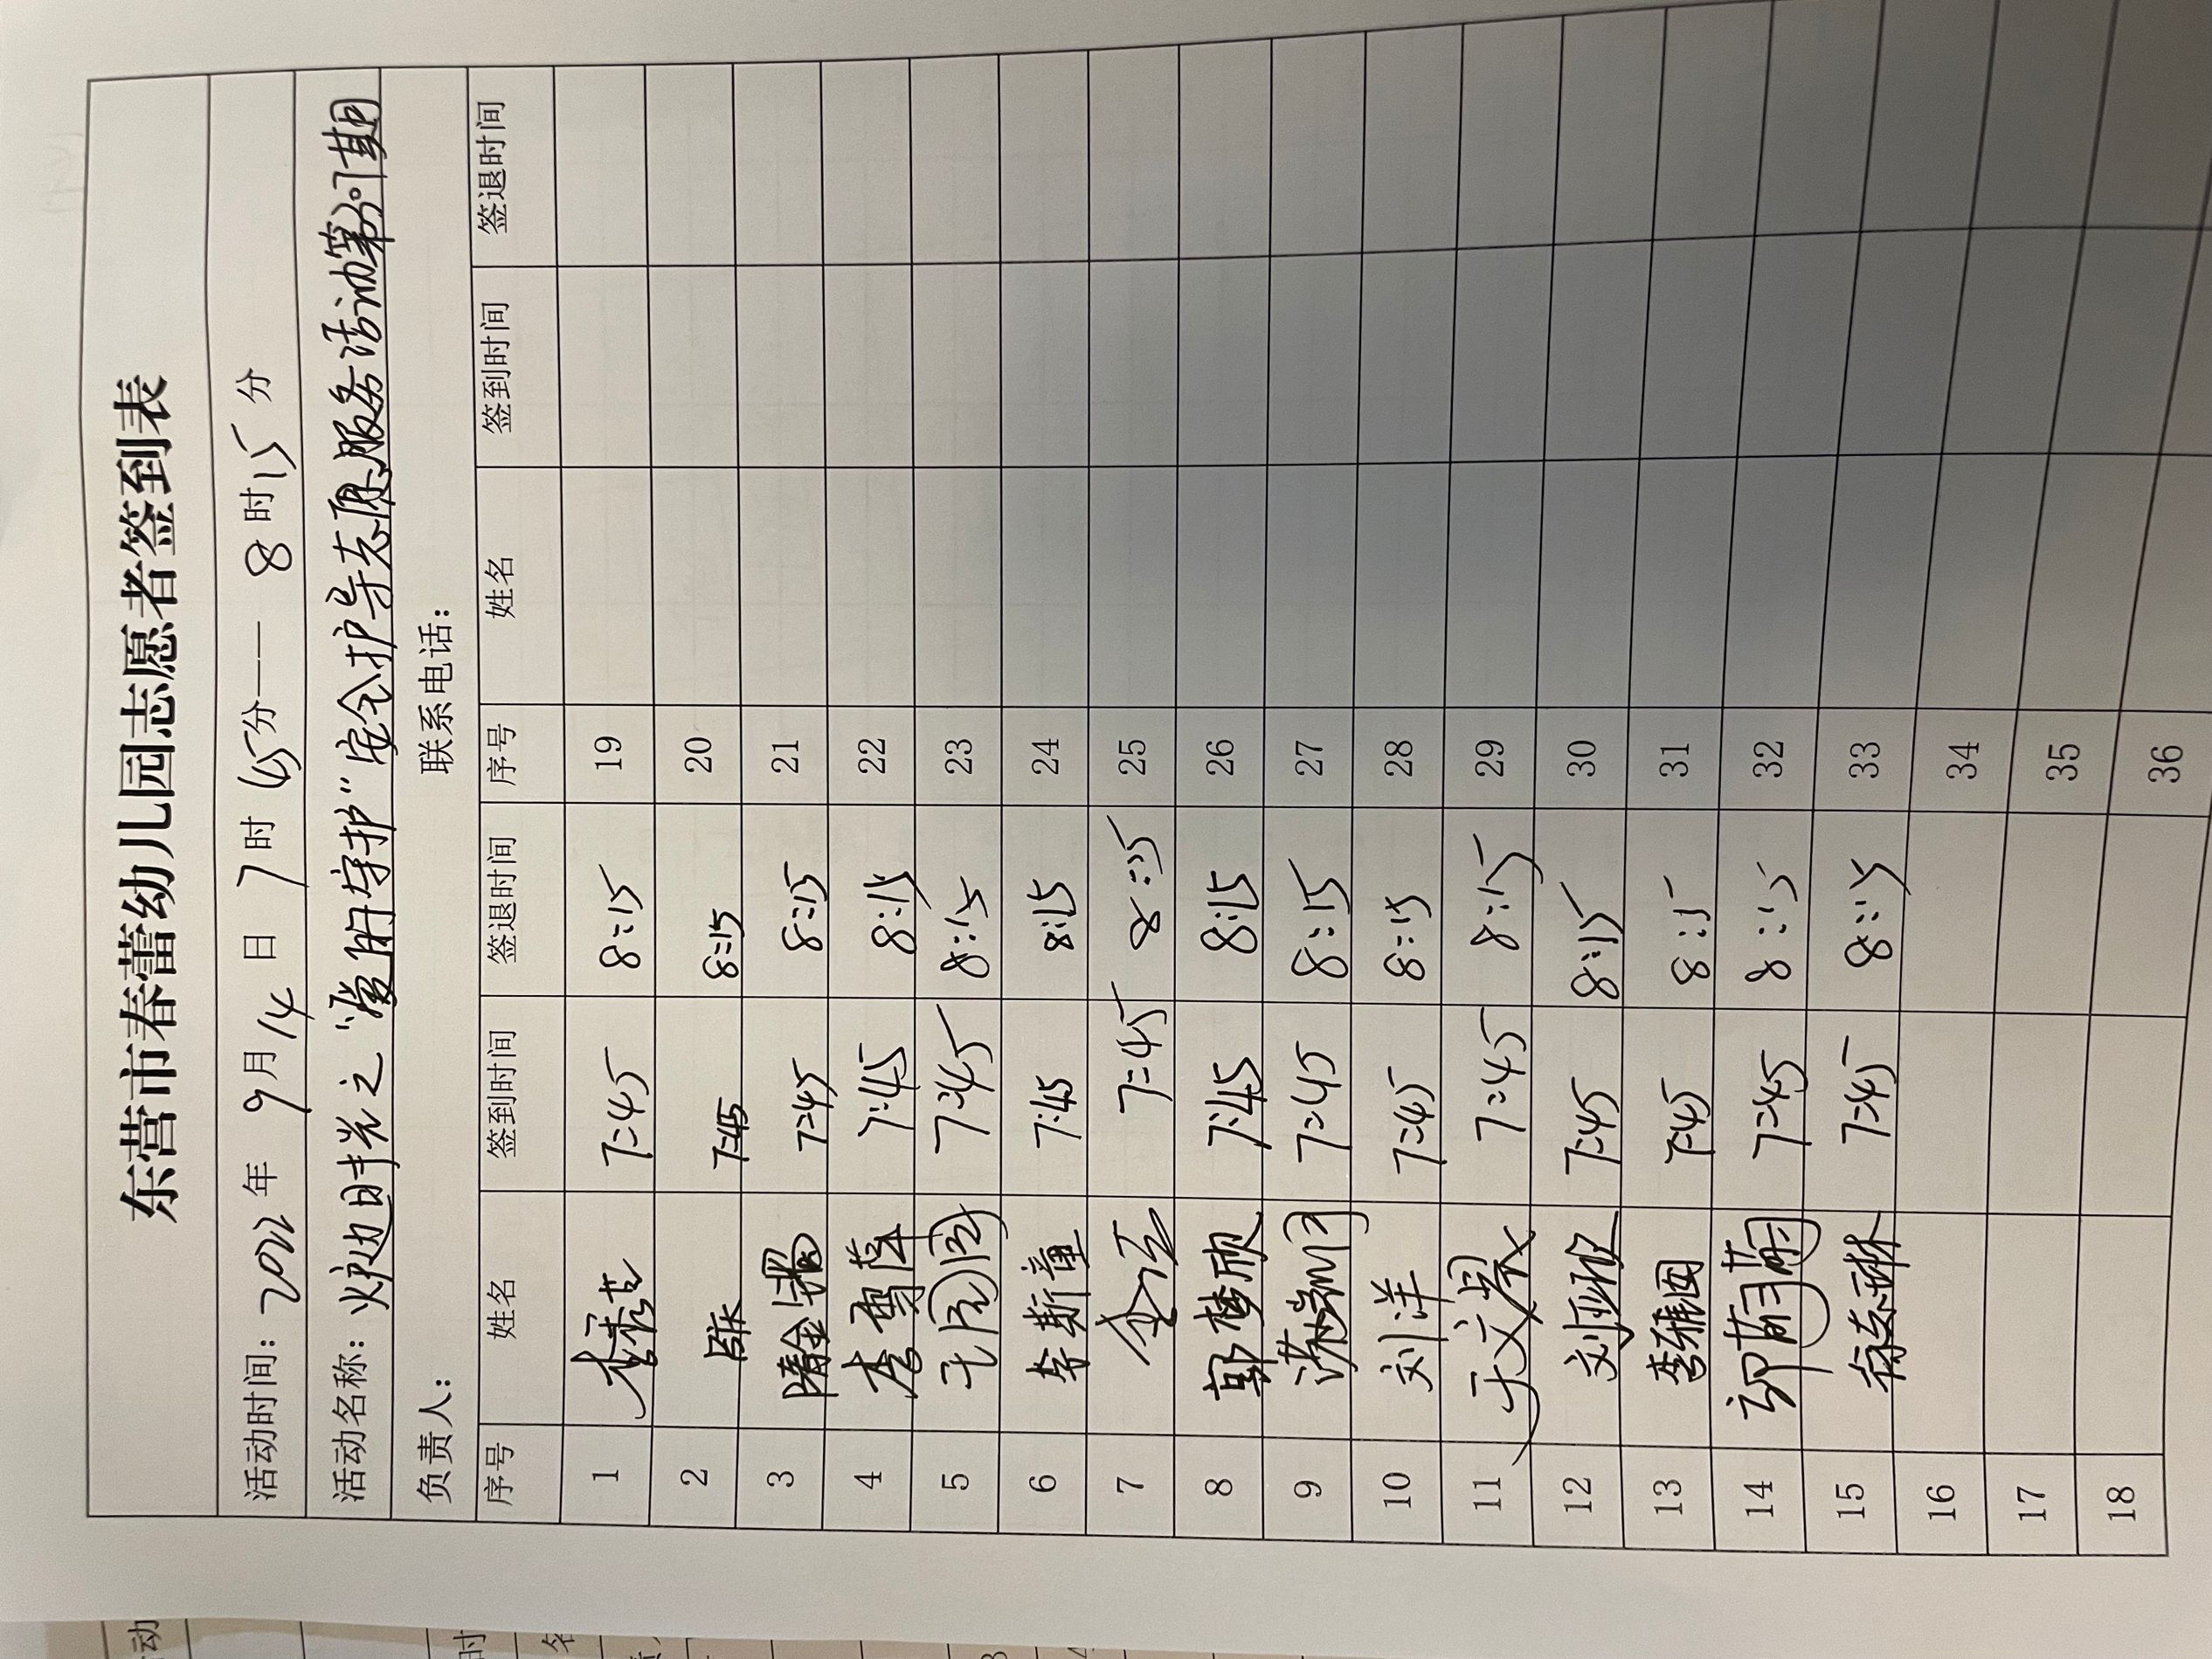 东营市春蕾幼儿园志愿者签到表
活动时间：2022年 9月14日 7时45分—— 8时15分
活动名称：炉边时光之“爱的守护”安全护导志愿服务活动第 期
负责人： 联系电话：
序号 姓名 签到时间 签退时间 序号 姓名 签到时间 签退时间
1 7:45 8:15 19
2 7:45 8:15 20
3 隋金瑞 7:45 8:15 21
4 李雪萍 7:45 8:15 22
5 王园园 7:45 8:15 23
6 李斯童 7:45 8:15 24
7 7:45 8:15 25
8 郭梦欣 7:45 8:15 26
9 7:45 8:15 27
10 刘洋 7:45 8:15 28
11 于文晨 7:45 8:15 29
12 刘亚欣 7:45 8:15 30
13 李雅囡 7:45 8:15 31
14 邵萌萌 7:45 8:15 32
15 7:45 8:15 33
16 34
17 35
18 36